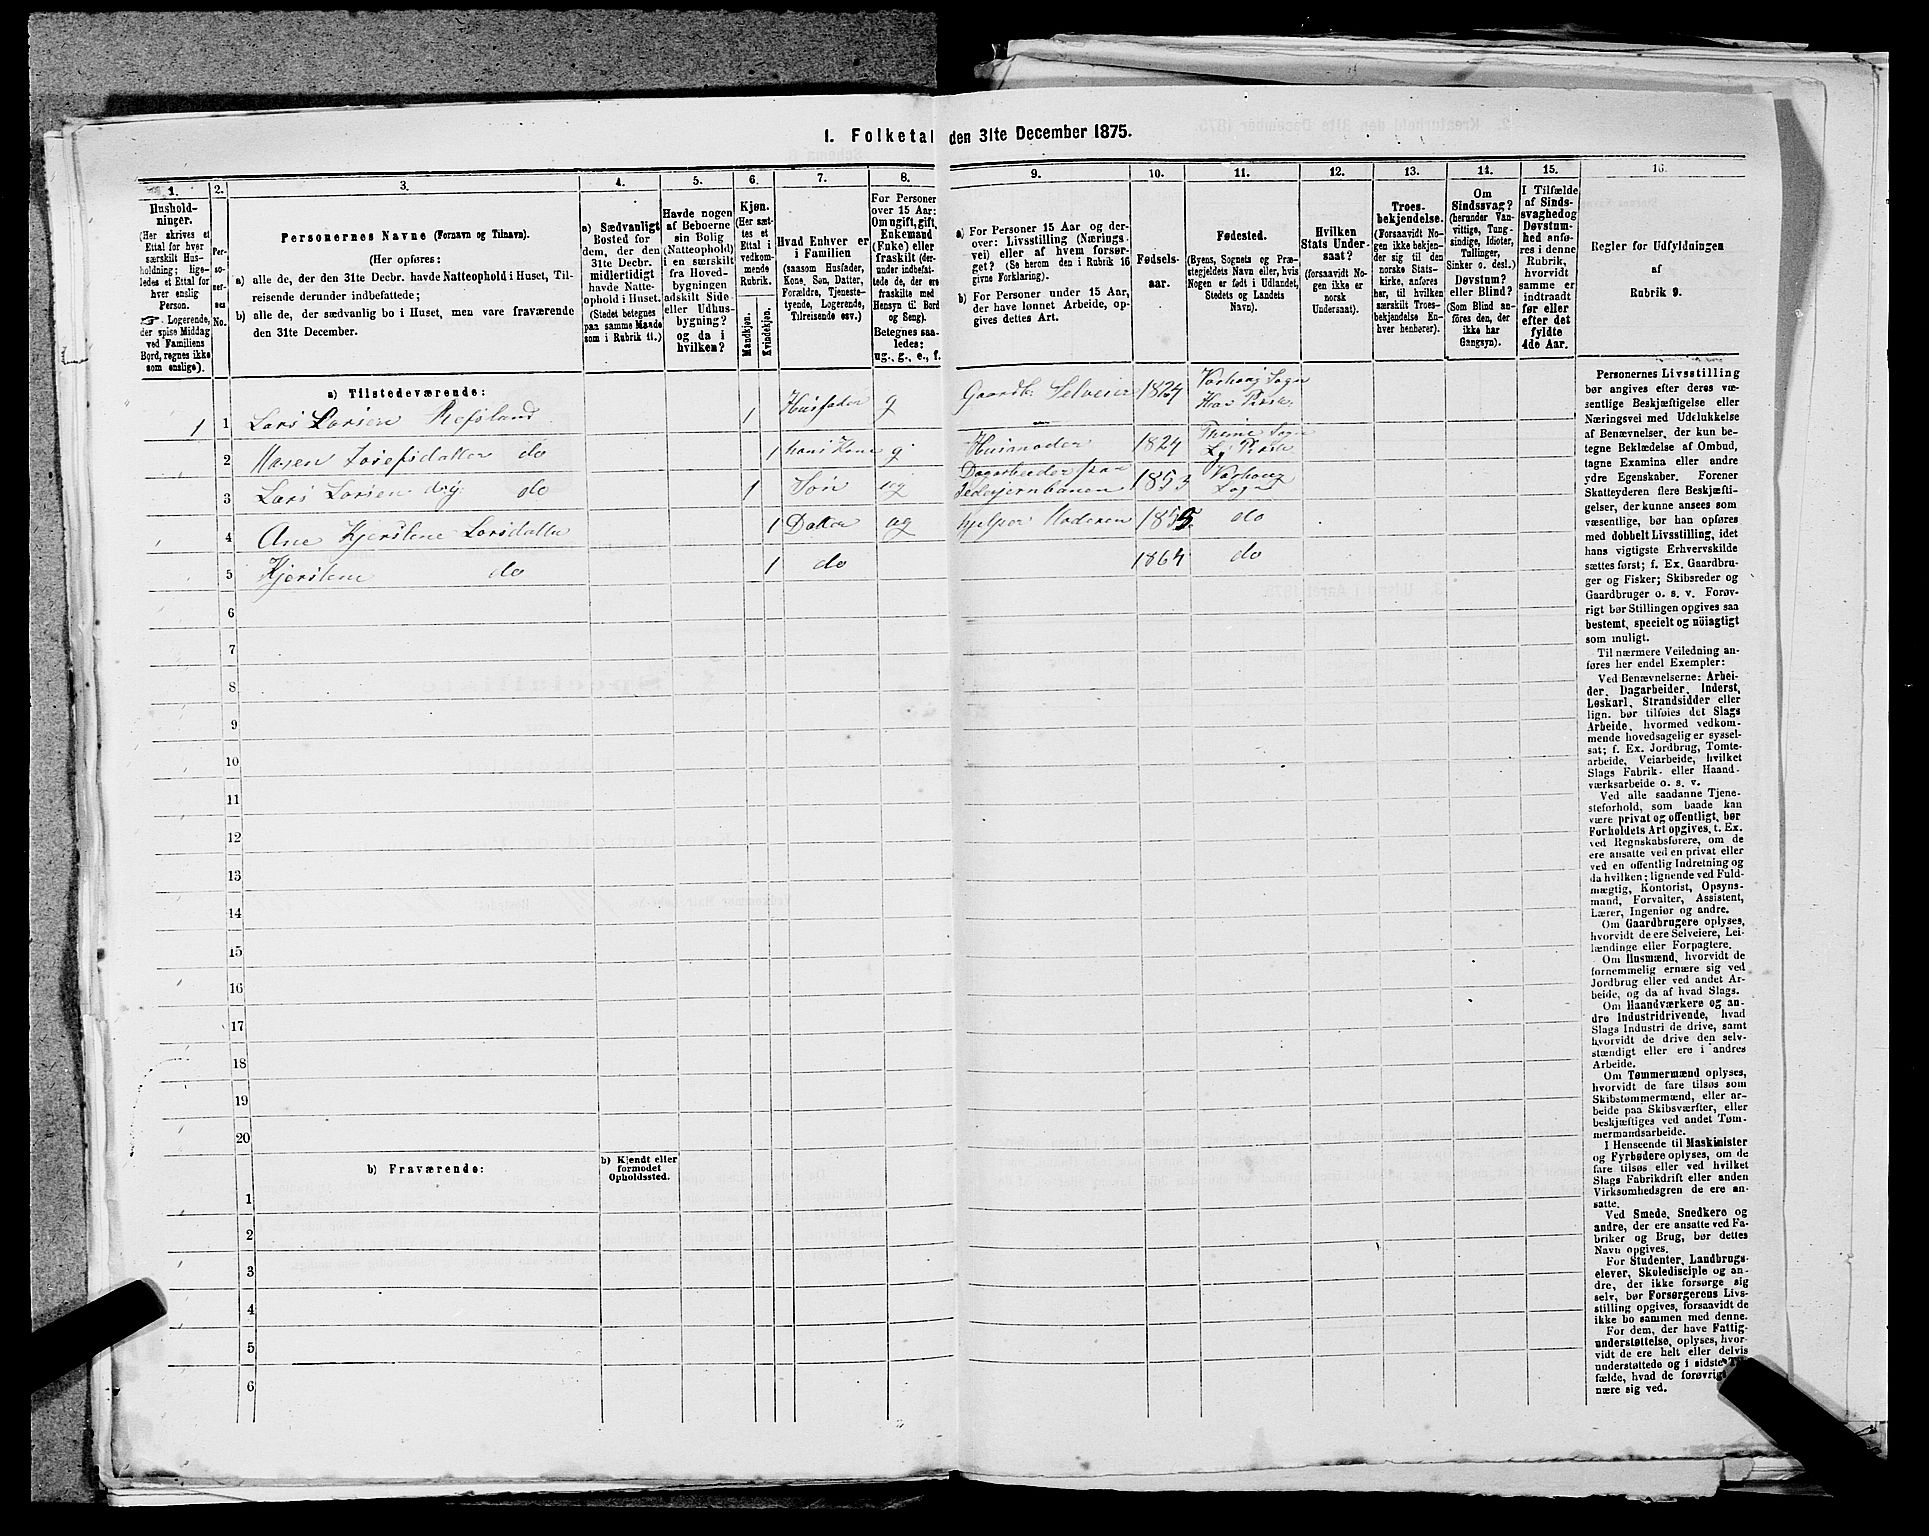 1. Folketal den 31te December 1875.
1.
2.
3.
4.
5.
6.
7.
8.
9.
10.
11.
12.
13.
14.
15.
16.
Hushold-
ninger.
(Her skrives et
Ettal for hver
særskilt Hus-
holdning; lige-
ledes et Ettal for
hver enslig
Person.
☞ Logerende,
der spise Middag
ved Familiens
Bord, regnes ikke
som enslige).
Per-
so-
ner-
nes
No.
Personernes Navne (Fornavn og Tilnavn).
(Her opføres:
a) alle de, der den 31te Decbr. havde Natteophold i Huset, Til-
reisende derunder indbefattede;
b) alle de, der sædvanlig bo i Huset, men vare fraværende
den 31te December.
a) Sædvanligt
Bosted for
dem, der den
31te Decbr.
midlertidigt
havde Natte-
ophold i Huset.
(Stedet betegnes
paa samme Maade
som i Rubrik 11.)
Havde nogen
af Beboerne
sin Bolig
(Natteophold)
i en særskilt
fra Hoved-
bygningen
adskilt Side-
eller Udhus-
bygning?
og da i
hvilken?
Kjøn.
(Her sæt-
tes et
Ettal i
vedkom-
mende
Rubrik.
Mandkjøn.
Kvindekjøn.
Hvad Enhver er
i Familien
(saasom Husfader,
Kone, Søn, Datter,
Forældre, Tjeneste-
tyende, Logerende,
Tilreisende osv.)
For Personer
over 15 Aar:
Om ugift, gift,
Enkemand
(Enke) eller
fraskilt (der-
under indbefat-
tede de, der ere
fraskilte med
Hensyn til Bord
og Seng).
Betegnes saa-
ledes:
ug., g., e., f.
a) For Personer 15 Aar og der-
over: Livsstilling (Nærings-
vei) eller af hvem forsør-
get? (Se herom den i Rubrik 16
givne Forklaring).
b) For Personer under 15 Aar,
der have lønnet Arbeide, op-
gives dettes Art.
Fødsels-
aar.
Fødested.
(Byens, Sognets og Præ-
stegjeldets Navn eller, hvis
Nogen er født i Udlandet,
Stedets og Landets
Navn).
Hvilken
Stats Under-
saat?
(forsaavidt No-
gen ikke er
norsk
Undersaat).
Troes-
bekjendelse.
(Forsaavidt No-
gen ikke bekjen-
der sig til den
norske Stats-
kirke, anføres
her, til hvilken
særskilt Troes-
bekjendelse En-
hver henhører).
Om
Sindssvag?
(herunder Van-
vittige, Tung-
sindige, Idioter,
Tullinger,
Sinker o. desl.)
Døvstum?
eller Blind?
(Som Blind an-
føres den, der
ikke har
Gangsyn).
I Tilfælde
af Sinds-
svaghed og
Døvstum-
hed anfø-
res i denne
Rubrik,
hvorvidt
samme er
indtraadt
før eller
efter det
fyldte
4de Aar.
Regler for Udfyldningen
af
Rubrik 9.
a) Tilstedeværende:
1 1 Lars Larsen Refsland 1 Husfader g Gaardb. Selveier 1824 Varhoug Sogn
Haa Præste.
2 Maren Josefsdatter do 1 hans Kone g Husmoder 1824 Thime Sogn
Ly Præste
3 Lars Larsen do 1 Søn ug Dagarbeider paa
Jederjernbanen 1853 Varhoug
Sogn
4 Ane Kjerstene Larsdatter 1 Datter ug hjelper Moderen 1855 do
5 Kjerstene do 1 do 1864 do
6
7
8
9
10
11
12
13
14
15
16
17
18
19
20
b) Fraværende:
b) Kjendt eller
formodet
Opholdssted.
1
2
3
4
5
6
Personernes Livsstilling
bør angives efter deres væ-
sentlige Beskjæftigelse eller
Næringsvei med Udelukkelse
af Benævnelser, der kun be-
tegne Beklædelse af Ombud,
tagne Examina eller andre
ydre Egenskaber. Forener
Skatteyderen flere Beskjæfti-
gelser, der kunne ansees som
væsentlige, bør han opføres
med dobbelt Livsstilling, idet
hans vigtigste Erhvervskilde
sættes først; f. Ex. Gaardbru-
ger og Fisker; Skibsreder og
Gaardbruger o. s. v. Forøv-
rigt bør Stillingen opgives saa
bestemt, specielt og nöiagtigt
som muligt.
Til nærmere Veiledning an-
føres her endel Exempler:
Ved Benævnelserne: Arbei-
der, Dagarbeider, Inderst,
Løskarl, Strandsidder eller
lign. bør tilføies det Slags
Arbeide, hvormed vedkom-
mende hovedsagelig er syssel-
sat; f. Ex. Jordbrug, Tomte-
arbeide, Veiarbeide, hvilket
Slags Fabrik- eller Haand-
værksarbeide o. s. v.
Ved alle saadanne Tjene-
steforhold, som baade kan
være privat og offentligt, bør
Forholdets Art opgives, t. Ex.
ved Regnskabsførere, om de
ere ansatte ved en privat eller
ved en offentlig Indretning og
da hvilken; lignende ved Fuld-
mægtig, Kontorist, Opsyns-
mand, Forvalter, Assistent,
Lærer, Ingeniør og andre.
Om Gaardbrugere oplyses,
hvorvidt de ere Selveiere, Lei-
lændinge eller Forpagtere.
Om Husmænd, hvorvidt de
fornemmelig ernære sig ved
Jordbrug eller ved andet Ar-
beide, og da af hvad Slags.
Om Haandværkere og an-
dre Industridrivende, hvad
Slags Industri de drive, samt
hvorvidt de drive den selv-
stændigt eller ere i andres
Arbeide.
Om Tømmermænd oplyses,
hvorvidt de fare tilsøs som
Skibstømmermænd, eller ar-
beide paa Skibsværfter, eller
beskjæftiges ved andet Tøm-
mermandsarbeide.
I Henseende til Maskinister
og Fyrbødere oplyses, om de
fare tilsøs eller ved hvilket
Slags Fabrikdrift eller anden
Virksomhedsgren de ere an-
satte.
Ved Smede, Snedkere og
andre, der ere ansatte ved Fa-
briker og Brug, bør dettes
Navn opgives.
For Studenter, Landbrugs-
elever, Skoledisciple og an-
dre, der ikke forsørge sig
selv, bør Forsørgerens Livs-
stilling opgives, forsaavidt de
ikke bo sammen med denne.
For dem, der have Fattig-
understøttelse, oplyses, hvor-
vidt de ere helt eller delvis
understøttede og i sidste
fælde, hvad de forøvrigt
nære sig ved.